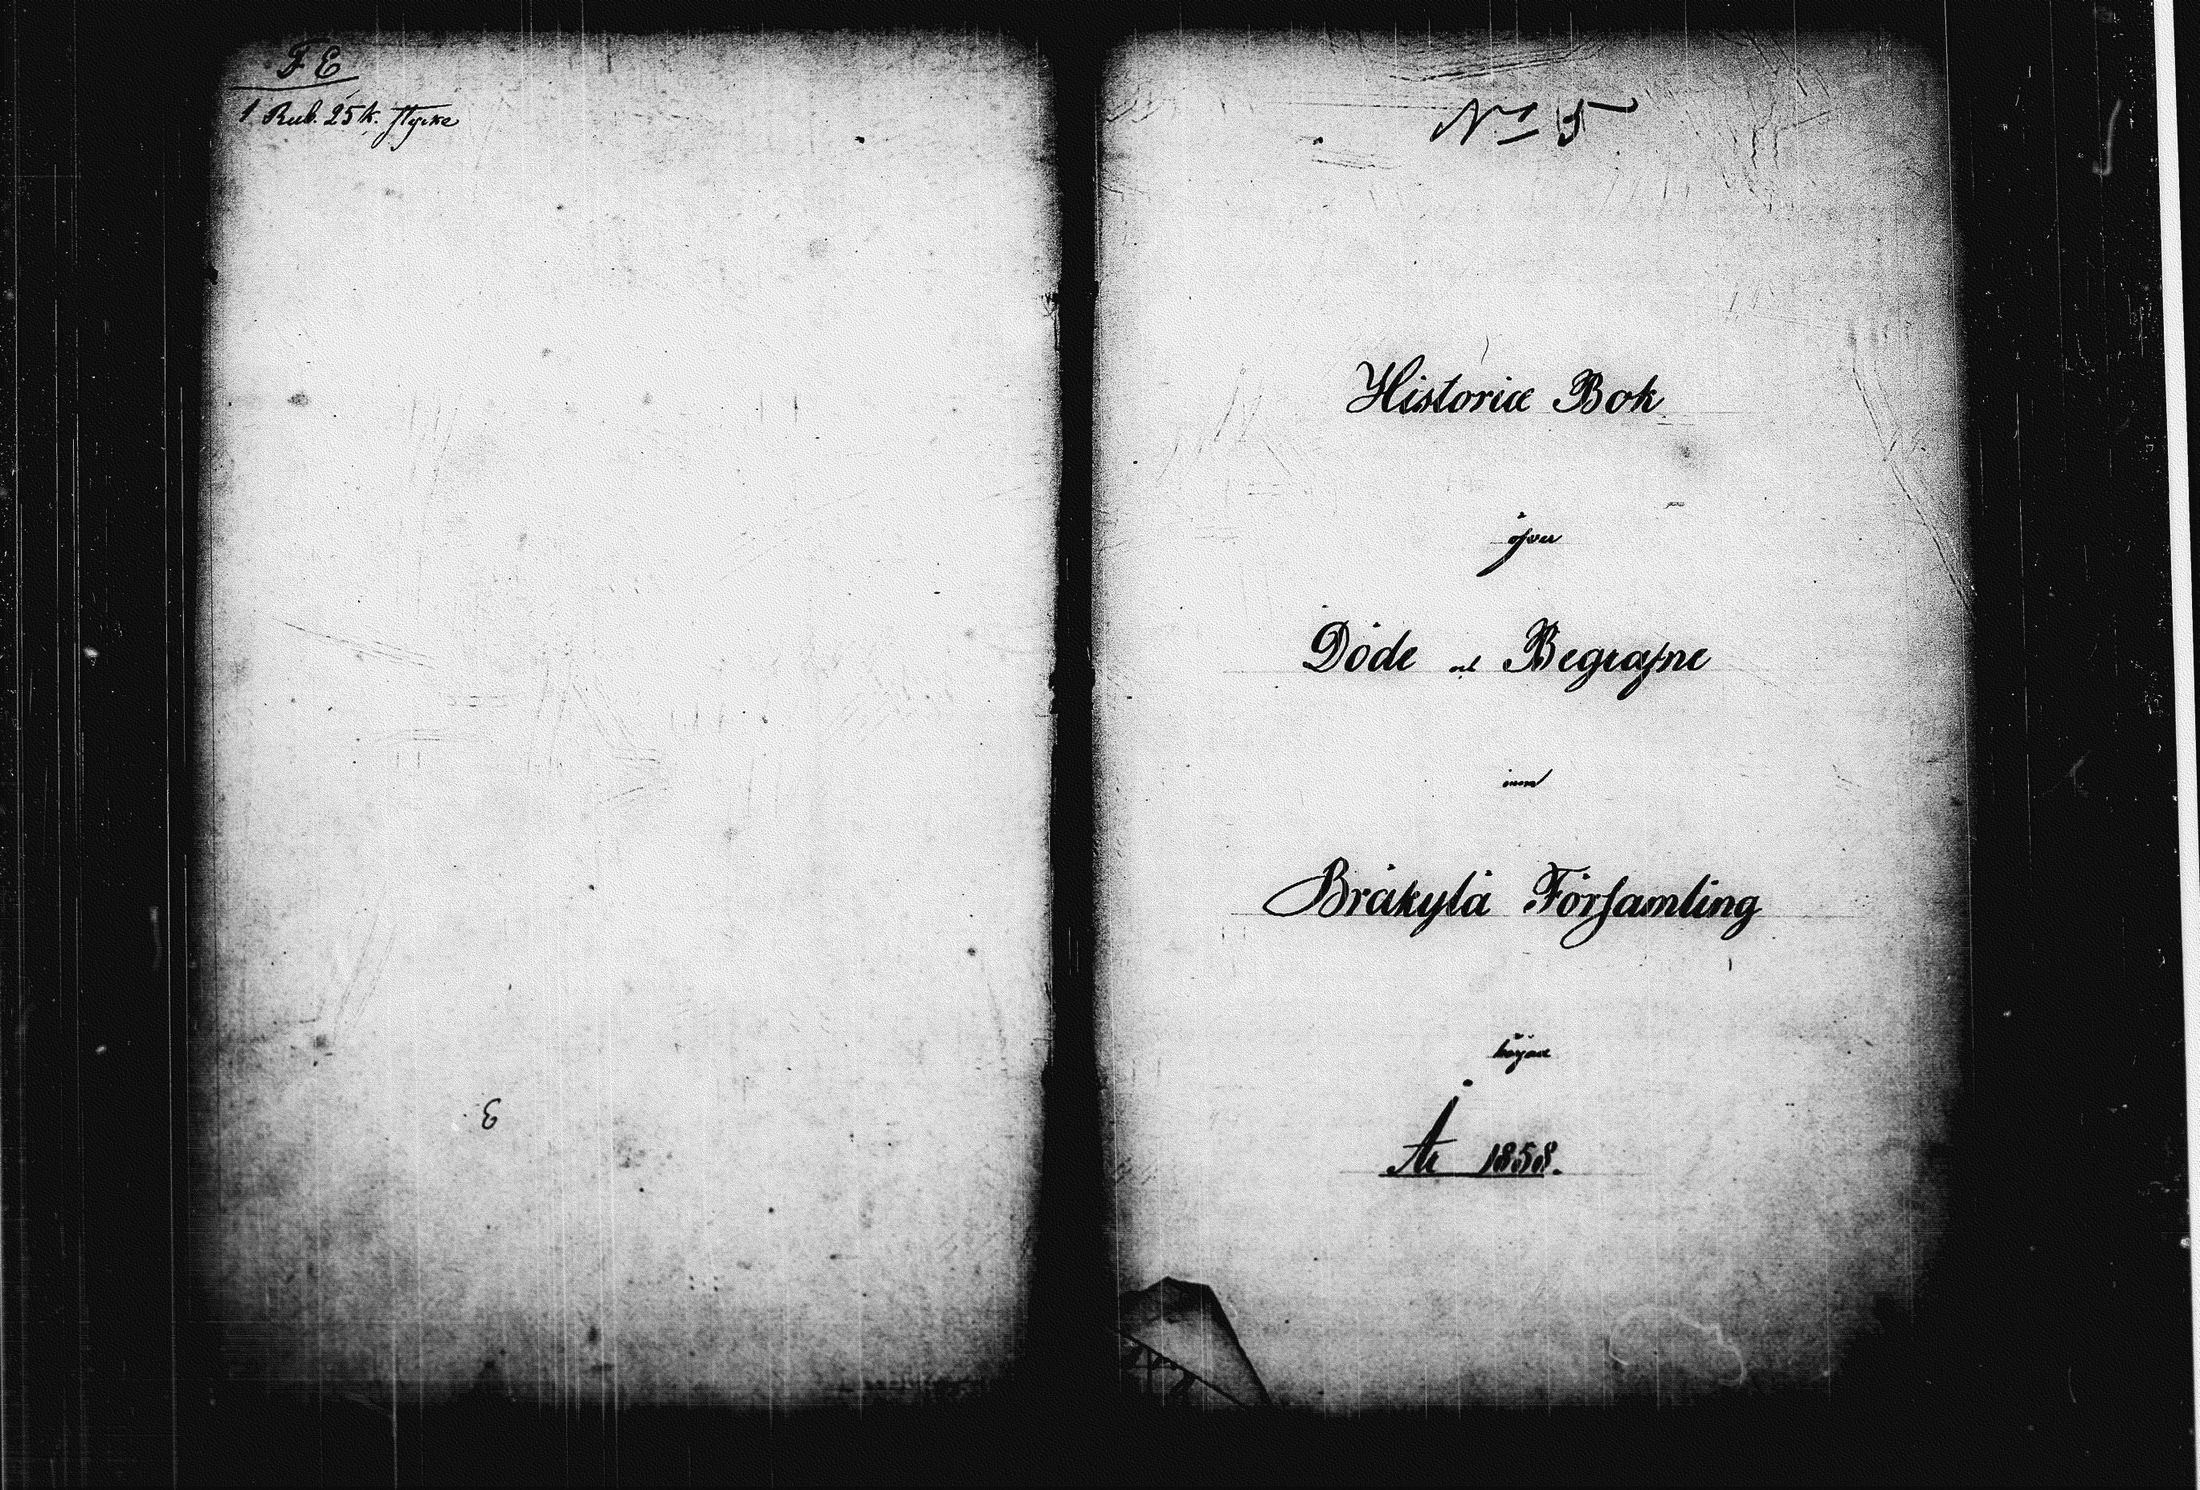 F E
1 Rub. 25 k. stycke
No 5
Historice Bok
öfver
Döde och Begrafne
inom
Bråkylä Församling
början
År 1858.